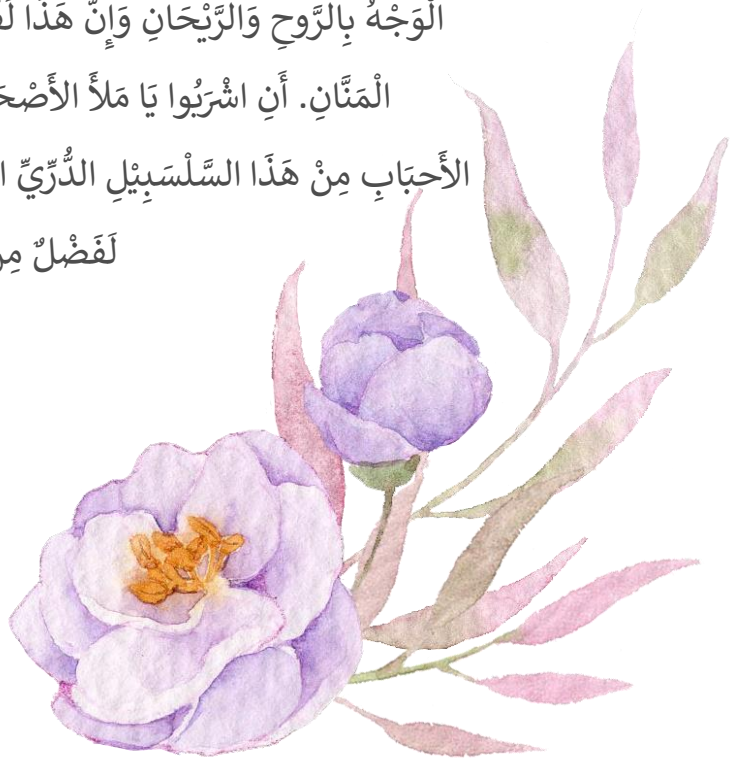 الْوَجْهُ بِالرَّوحِ وَالرَّيْحَانِ وَإِنَّ هَذَا
الْمَنَّانِ. أَنِ اشْرَبُوا يَا مَلأَ
الأَحبَابِ مِنْ هَذَا السَّلْسَبِيْلِ الدُّرِّيِّ
لَفَضْلٌ